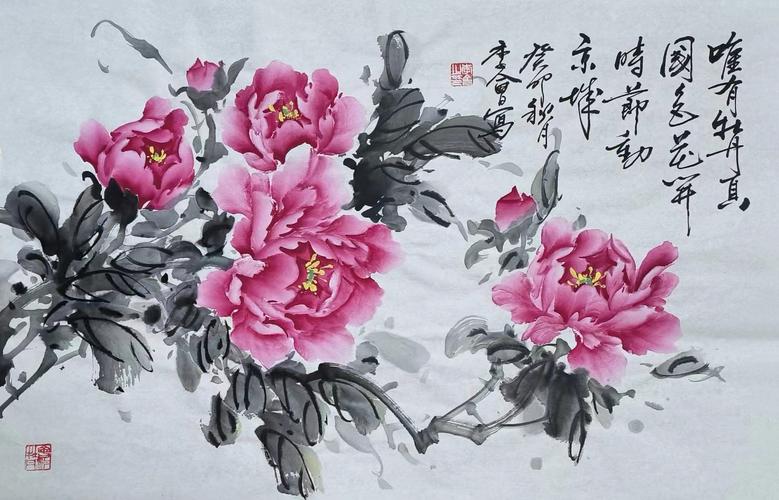 唯有牡丹真
國色花開
時節動
京城
癸卯秋月
李會寫